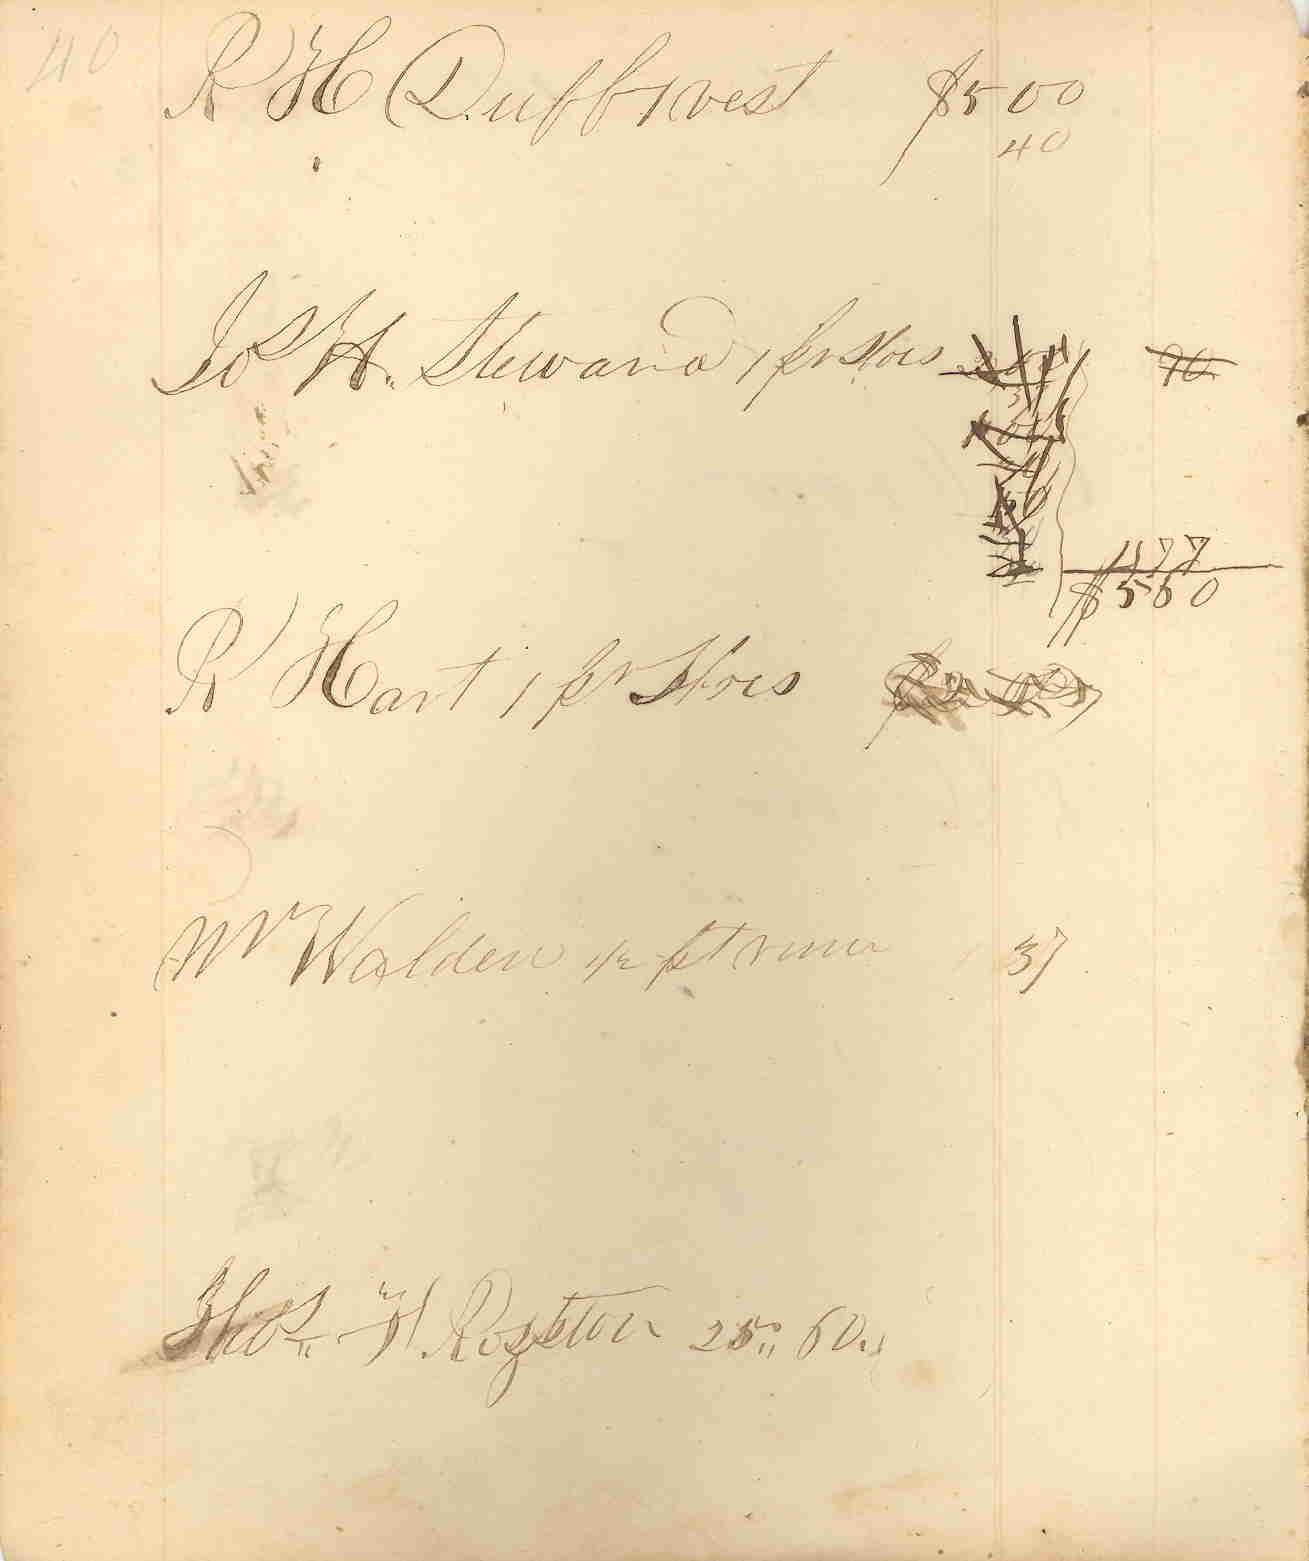 40
R H Duff 1 vest $5 00
40
Jos H. Steward 1 pr Shoes
90
177
$550
R Hart 1 pr Shoes
Mr Walden 1/2 pt 37
Thos. H Royston 25 60